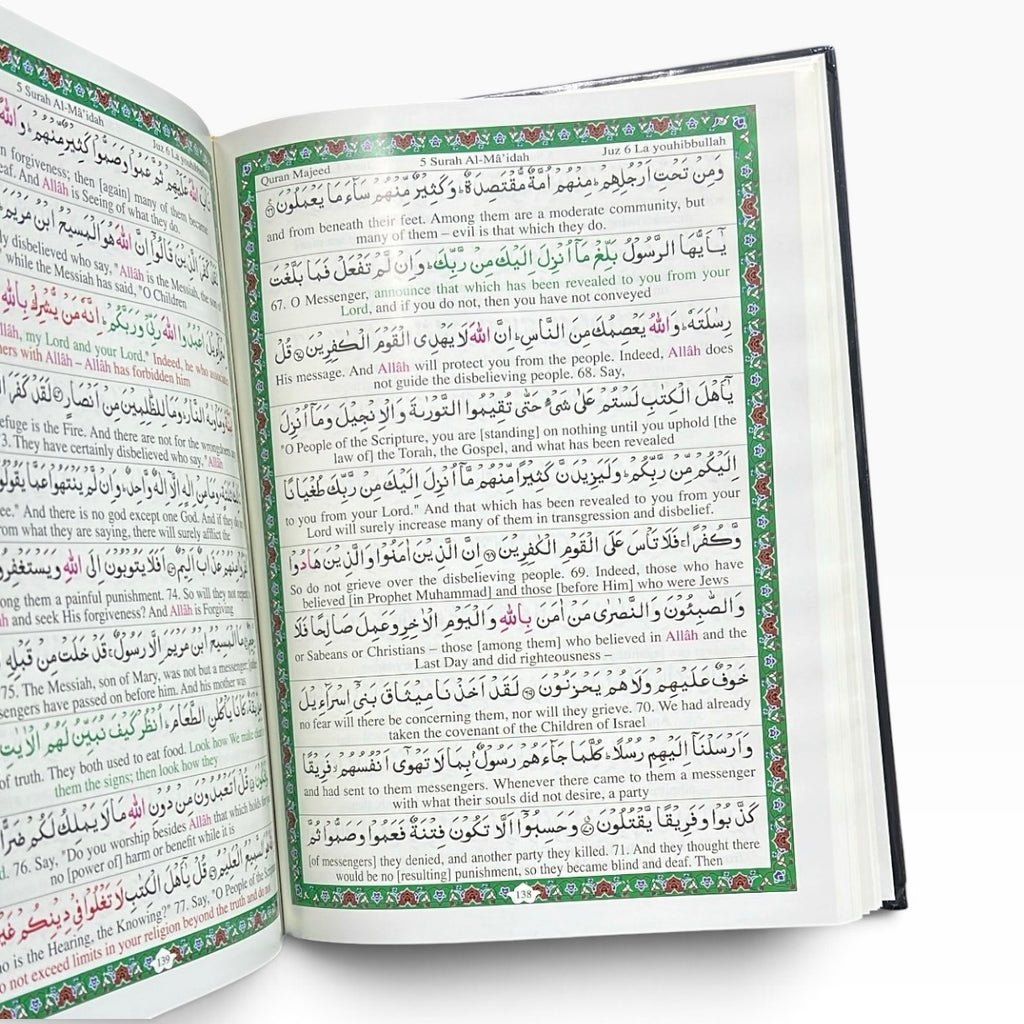 Quran Majeed
5 Surah Al-Mâ'idah
Juz 6 La youhibbullah
وَمِنْ تَحْتِ اَرْجُلِهِمْ ؕ مِنْهُمْ اُمَّةٌ مُّقْتَصِدَةٌ ؕ وَكَثِيْرٌ مِّنْهُمْ سَآءَ مَا يَعْمَلُوْنَ ﴿٦٦﴾
and from beneath their feet. Among them are a moderate community, but
many of them – evil is that which they do.
يٰۤاَيُّهَا الرَّسُوْلُ بَلِّغْ مَاۤ اُنْزِلَ اِلَيْكَ مِنْ رَّبِّكَ ؕ وَاِنْ لَّمْ تَفْعَلْ فَمَا بَلَّغْتَ
67. O Messenger, announce that which has been revealed to you from your
Lord, and if you do not, then you have not conveyed
رِسٰلَتَهٗ ؕ وَاللّٰهُ يَعْصِمُكَ مِنَ النَّاسِ ؕ اِنَّ اللّٰهَ لَا يَهْدِى الْقَوْمَ الْكٰفِرِيْنَ ﴿٦٧﴾ قُلْ
His message. And Allâh will protect you from the people. Indeed, Allâh does
not guide the disbelieving people. 68. Say,
يٰۤاَهْلَ الْكِتٰبِ لَسْتُمْ عَلٰى شَىْءٍ حَتّٰى تُقِيْمُوا التَّوْرٰىةَ وَالْاِنْجِيْلَ وَمَاۤ اُنْزِلَ
"O People of the Scripture, you are [standing] on nothing until you uphold [the
law of] the Torah, the Gospel, and what has been revealed
اِلَيْكُمْ مِّنْ رَّبِّكُمْ ؕ وَلَيَزِيْدَنَّ كَثِيْرًا مِّنْهُمْ مَّاۤ اُنْزِلَ اِلَيْكَ مِنْ رَّبِّكَ طُغْيَانًا
to you from your Lord." And that which has been revealed to you from your
Lord will surely increase many of them in transgression and disbelief.
وَّكُفْرًا ۚ فَلَا تَاْسَ عَلَى الْقَوْمِ الْكٰفِرِيْنَ ﴿٦٨﴾ اِنَّ الَّذِيْنَ اٰمَنُوْا وَالَّذِيْنَ هَادُوْا
So do not grieve over the disbelieving people. 69. Indeed, those who have
believed [in Prophet Muhammad] and those [before Him] who were Jews
وَالصّٰبِـُٔوْنَ وَالنَّصٰرٰى مَنْ اٰمَنَ بِاللّٰهِ وَالْيَوْمِ الْاٰخِرِ وَعَمِلَ صَالِحًا فَلَا
or Sabeans or Christians – those [among them] who believed in Allâh and the
Last Day and did righteousness –
خَوْفٌ عَلَيْهِمْ وَلَا هُمْ يَحْزَنُوْنَ ﴿٦٩﴾ لَقَدْ اَخَذْنَا مِيْثَاقَ بَنِىْۤ اِسْرَآءِيْلَ
no fear will there be concerning them, nor will they grieve. 70. We had already
taken the covenant of the Children of Israel
وَاَرْسَلْنَاۤ اِلَيْهِمْ رُسُلًا ؕ كُلَّمَا جَآءَهُمْ رَسُوْلٌۢ بِمَا لَا تَهْوٰٓى اَنْفُسُهُمْ ۙ فَرِيْقًا
and had sent to them messengers. Whenever there came to them a messenger
with what their souls did not desire, a party
كَذَّبُوْا وَفَرِيْقًا يَّقْتُلُوْنَ ﴿٧٠﴾ وَحَسِبُوْۤا اَلَّا تَكُوْنَ فِتْنَةٌ فَعَمُوْا وَصَمُّوْا ثُمَّ
[of messengers] they denied, and another party they killed. 71. And they thought there
would be no [resulting] punishment, so they became blind and deaf. Then
138
5 Surah Al-Mâ'idah
Juz 6 La youhibb
اللّٰهُ عَلَيْهِمْ ثُمَّ عَمُوْا وَصَمُّوْا كَثِيْرٌ مِّنْهُمْ ؕ وَاللّٰهُ
in forgiveness; then [again] many of them became
deaf. And Allâh is Seeing of what they do.
كَفَرَ الَّذِيْنَ قَالُوْۤا اِنَّ اللّٰهَ هُوَ الْمَسِيْحُ ابْنُ مَرْيَمَ
disbelieved who say, "Allâh is the Messiah, the son of
while the Messiah has said, "O Children
اعْبُدُوا اللّٰهَ رَبِّىْ وَرَبَّكُمْ ؕ اِنَّهٗ مَنْ يُّشْرِكْ بِاللّٰهِ
Allâh, my Lord and your Lord." Indeed, he who associates
others with Allâh – Allâh has forbidden him
النَّارُ ؕ وَمَا لِلظّٰلِمِيْنَ مِنْ اَنْصَارٍ ﴿٧٢﴾ لَقَدْ كَفَرَ
refuge is the Fire. And there are not for the wrongdoers
73. They have certainly disbelieved who say, "Allâh
وَمَا مِنْ اِلٰهٍ اِلَّاۤ اِلٰهٌ وَّاحِدٌ ؕ وَاِنْ لَّمْ يَنْتَهُوْا عَمَّا يَقُوْلُوْنَ
And there is no god except one God. And if they do
from what they are saying, there will surely afflict the
مِنْهُمْ عَذَابٌ اَلِيْمٌ ﴿٧٣﴾ اَفَلَا يَتُوْبُوْنَ اِلَى اللّٰهِ وَيَسْتَغْفِرُوْ
among them a painful punishment. 74. So will they not repent
and seek His forgiveness? And Allâh is Forgiving
مَا الْمَسِيْحُ ابْنُ مَرْيَمَ اِلَّا رَسُوْلٌ ۚ قَدْ خَلَتْ مِنْ قَبْلِهِ
75. The Messiah, son of Mary, was not but a messenger; [other]
messengers have passed on before him. And his mother was
كَانَا يَاْكُلٰنِ الطَّعَامَ ؕ اُنْظُرْ كَيْفَ نُبَيِّنُ لَهُمُ الْاٰيٰتِ
of truth. They both used to eat food. Look how We make clear
them the signs; then look how they
قُلْ اَتَعْبُدُوْنَ مِنْ دُوْنِ اللّٰهِ مَا لَا يَمْلِكُ لَكُمْ ضَرًّا
76. Say, "Do you worship besides Allâh that which holds for you
no [power of] harm or benefit while it is
السَّمِيْعُ الْعَلِيْمُ ﴿٧٦﴾ قُلْ يٰۤاَهْلَ الْكِتٰبِ لَا تَغْلُوْا فِىْ دِيْنِكُمْ غَيْرَ
who is the Hearing, the Knowing?" 77. Say, "O People of the Scripture,
do not exceed limits in your religion beyond the truth and do not
139